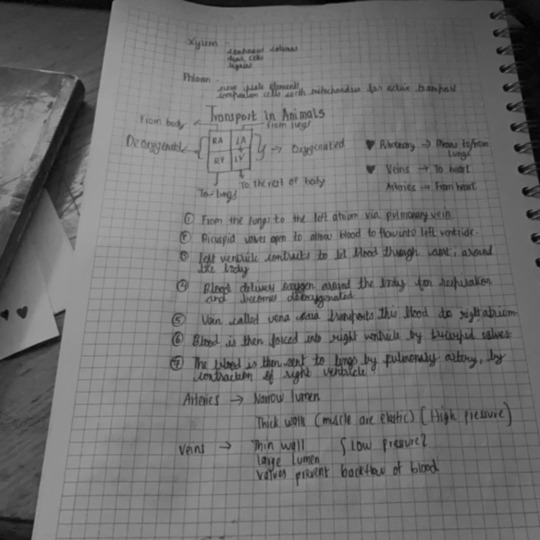 Xylem -
continuous column
dead cells
lignin
Phloem -
sieve plate elements
companion cells with mitochondria for active transport
Transport in Animals
From body
From lungs
Deoxygenated
RA LA
RV LV
→ Oxygenated
To lungs
To the rest of body
♥ Pulmonary → to/from
lungs
♥ Veins → To heart
Arteries → From heart
① From the lungs to the left atrium via pulmonary vein.
② Bicuspid valves open to allow blood to flow into left ventricle.
③ Left ventricle contracts to let blood through around
the body
④ Blood delivers oxygen around the body for respiration
and becomes deoxygenated
⑤ Vein called vena cava transports this blood to right atrium
⑥ Blood is then forced into right ventricle by tricuspid valves
⑦ The blood is then sent to lungs by pulmonary artery, by
contraction of right ventricle
Arteries → Narrow lumen
Thick walls (muscle are elastic) [High pressure]
Veins → Thin wall {Low pressure}
large lumen
valves prevent backflow of blood